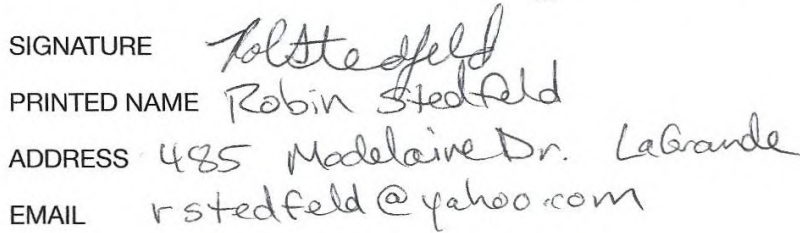 SIGNATURE Stedfeld
PRINTED NAME Robin Stedfeld
ADDRESS 485 Modelaine Dr. LaGrande
EMAIL rstedfeld@yahoo.com